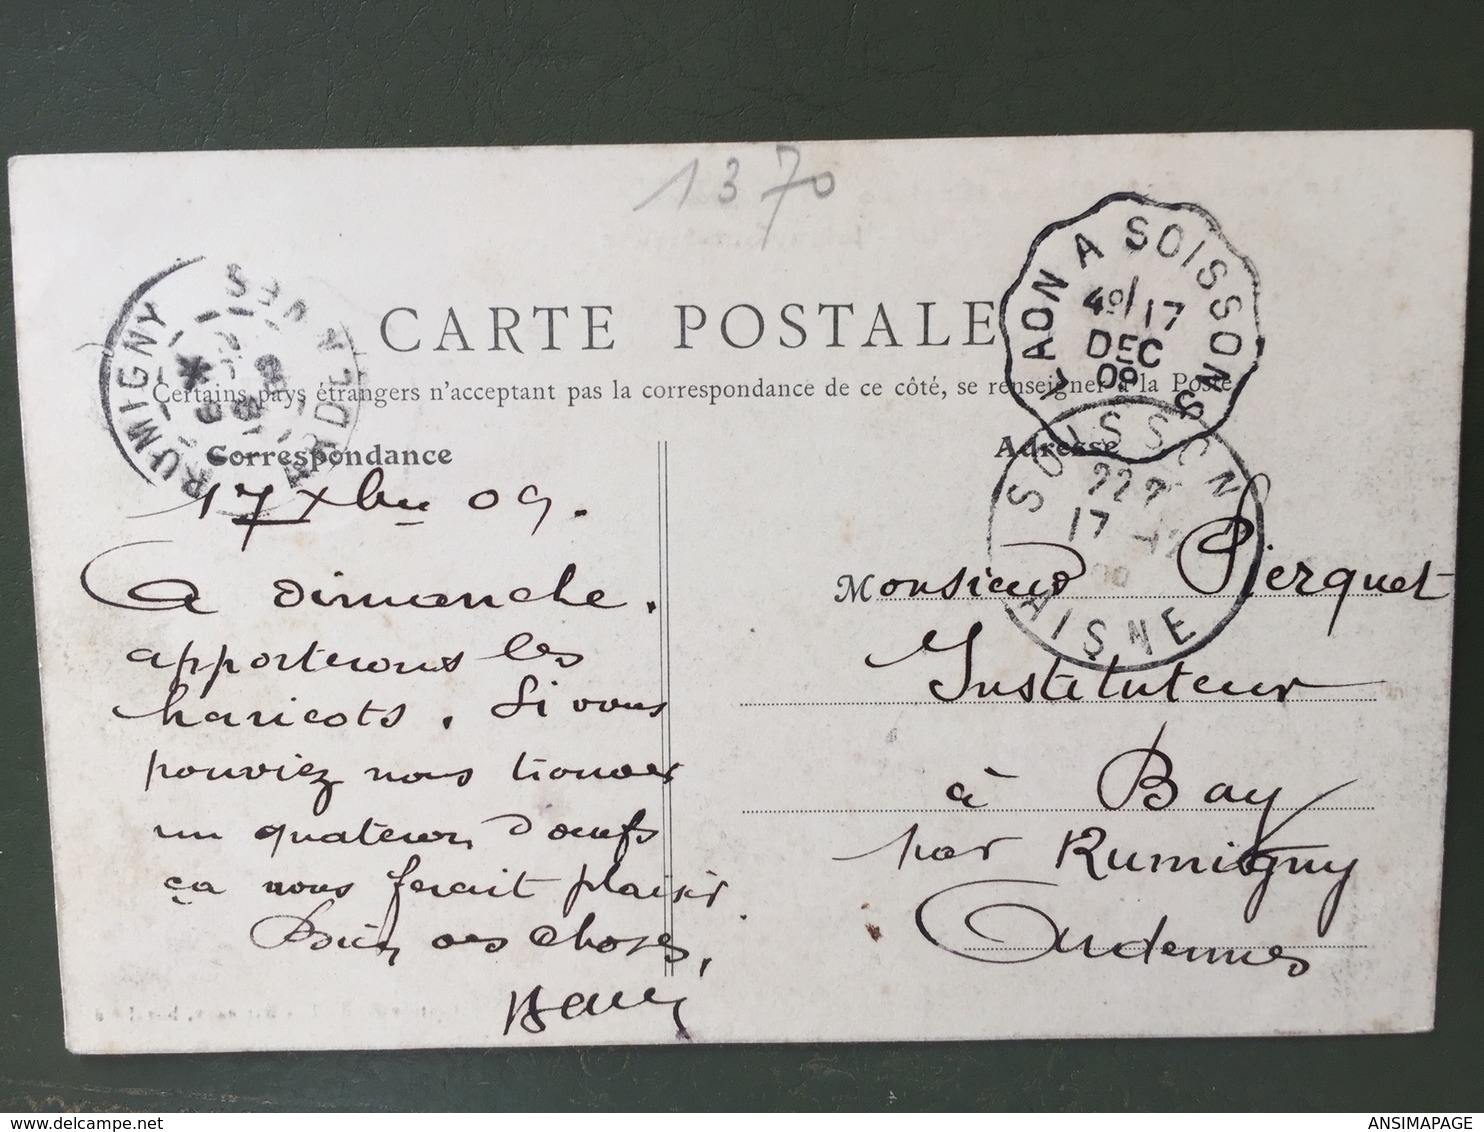 1370
RUMIGNY ARDENNES
LAON A SOISSONS
4º/17
DEC
09
CARTE POSTALE
Certains pays étrangers n'acceptent pas la correspondance de ce côté, se renseigner à la Poste
Correspondance
Adresse
SOISSONS
17 -12
AISNE
17 Xbre 09.
A Dimanche.
apporterons les
haricots. Si vous
pouviez nous trouver
un quateron d'oeufs
ça nous ferait plaisir.
Bien des choses,
Monsieur Pierquet
Instituteur
à Bay
par Rumigny
Ardennes
ANSIMAPAGE